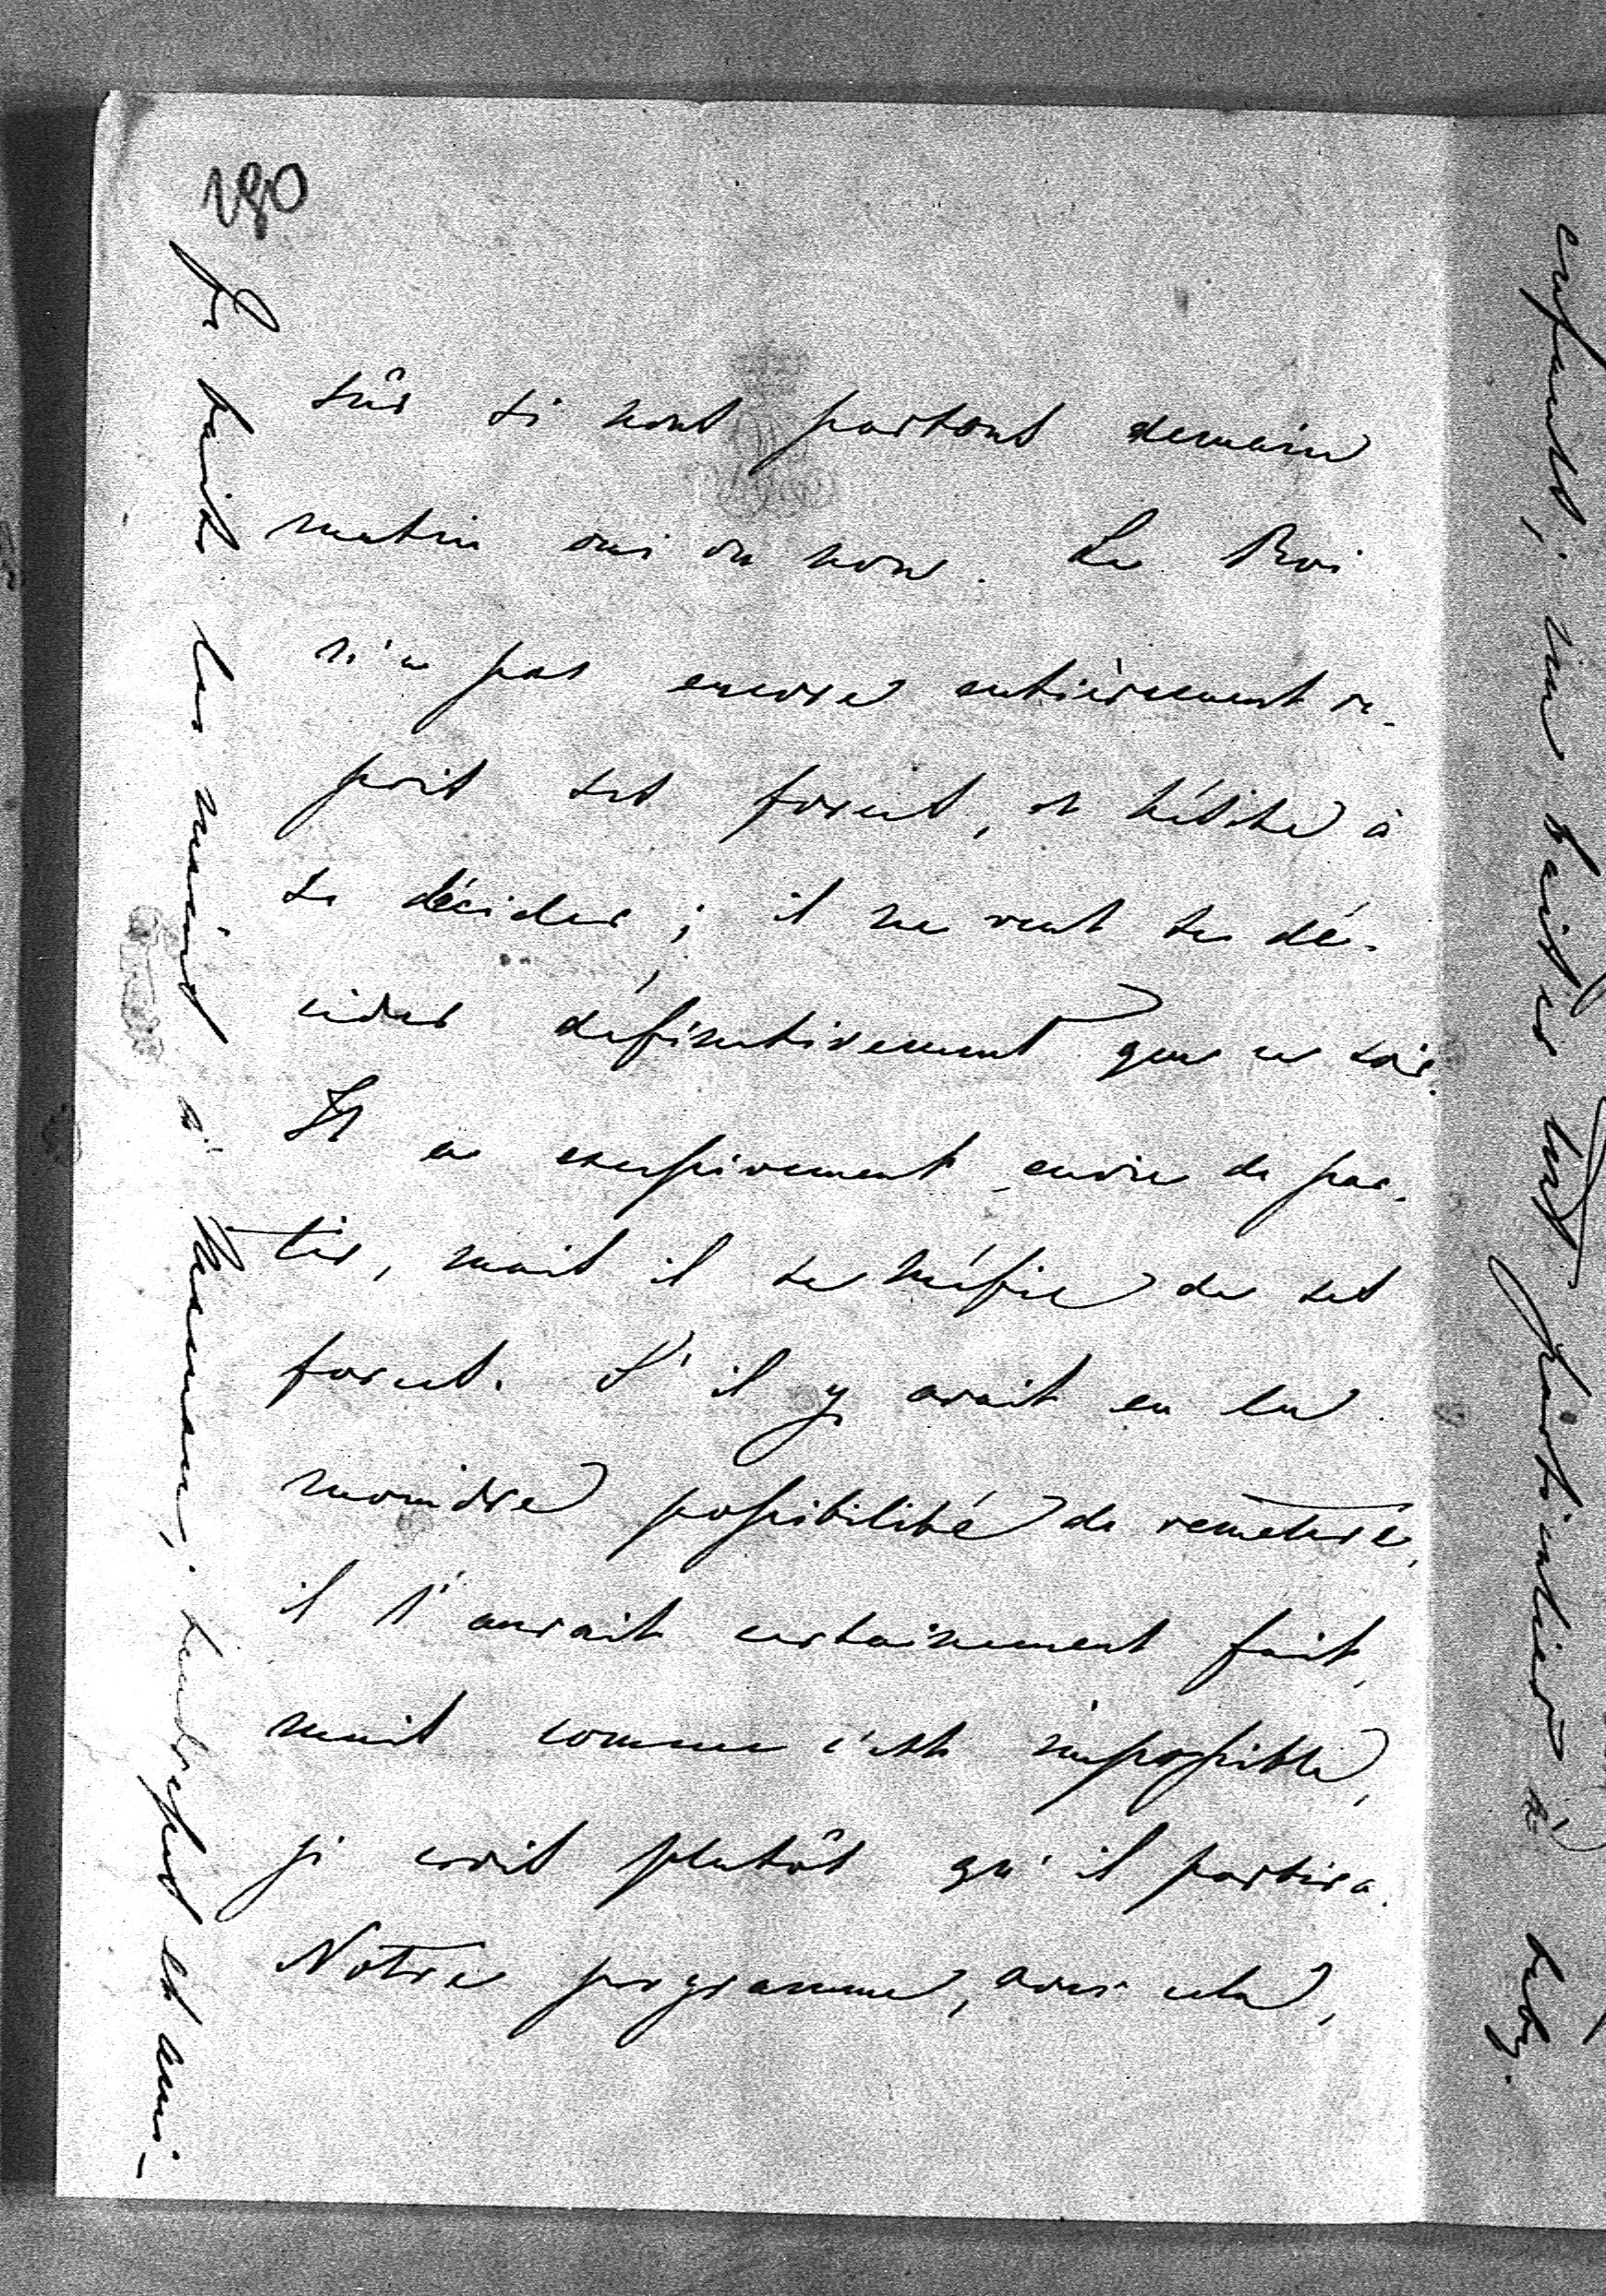 180
sûr si nous partons demain
matin oui ou non. Le Roi
n'a pas encore entièrement re-
pris ses forces, et hésite à
se décider; il ne veut se dé-
cider définitivement que ce soir.
Il a excessivement envie de par-
tir, mais il se méfie de ses
forces. S'il y avait eu la
moindre possibilité de remettre,
il l'aurait certainement fait,
mais comme c'est impossible,
je crois plutôt qu'il partira.
Notre programme, avec cela,
Je baise les mains à Maman, embrasse les
enfants; un baiser tout particulier à baby.